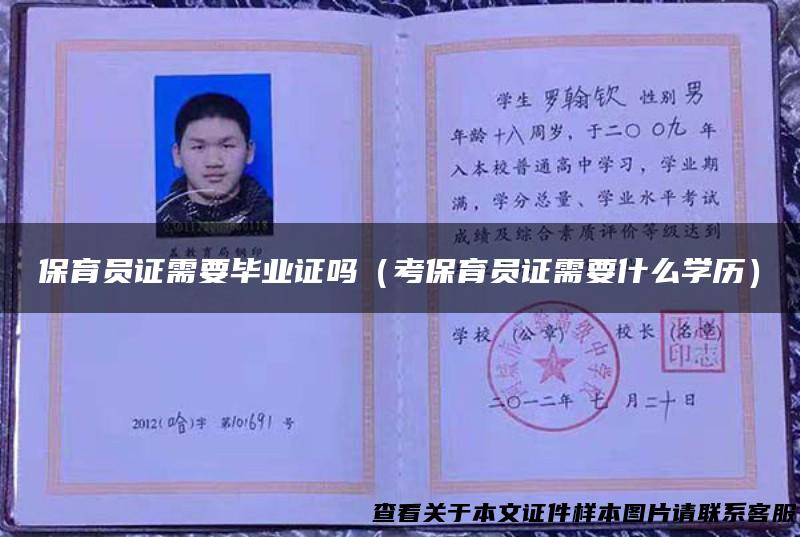 学生 罗翰钦 性别 男
年龄 十八 周岁，于二〇 〇九 年
入本校普通高中学习，学业期
满，学分总量、学业水平考试
成绩及综合素质评价等级达到
县教育局钢印
保育员证需要毕业证吗（考保育员证需要什么学历）
学校 (公章) 校长 (名章)
高级中学校
印志
二〇一二年 七 月二十日
2012(哈)字 第101691 号
查看关于本文证件样本图片请联系客服